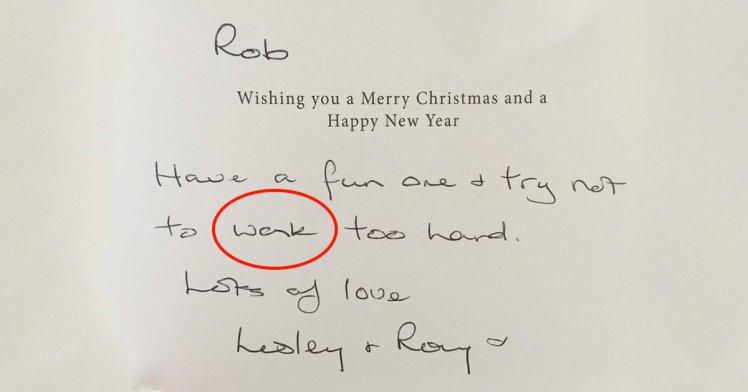 Rob
Wishing you a Merry Christmas and a
Happy New Year
Have a fun one + try not
to work too hard.
Lots of love
Lesley + Roy